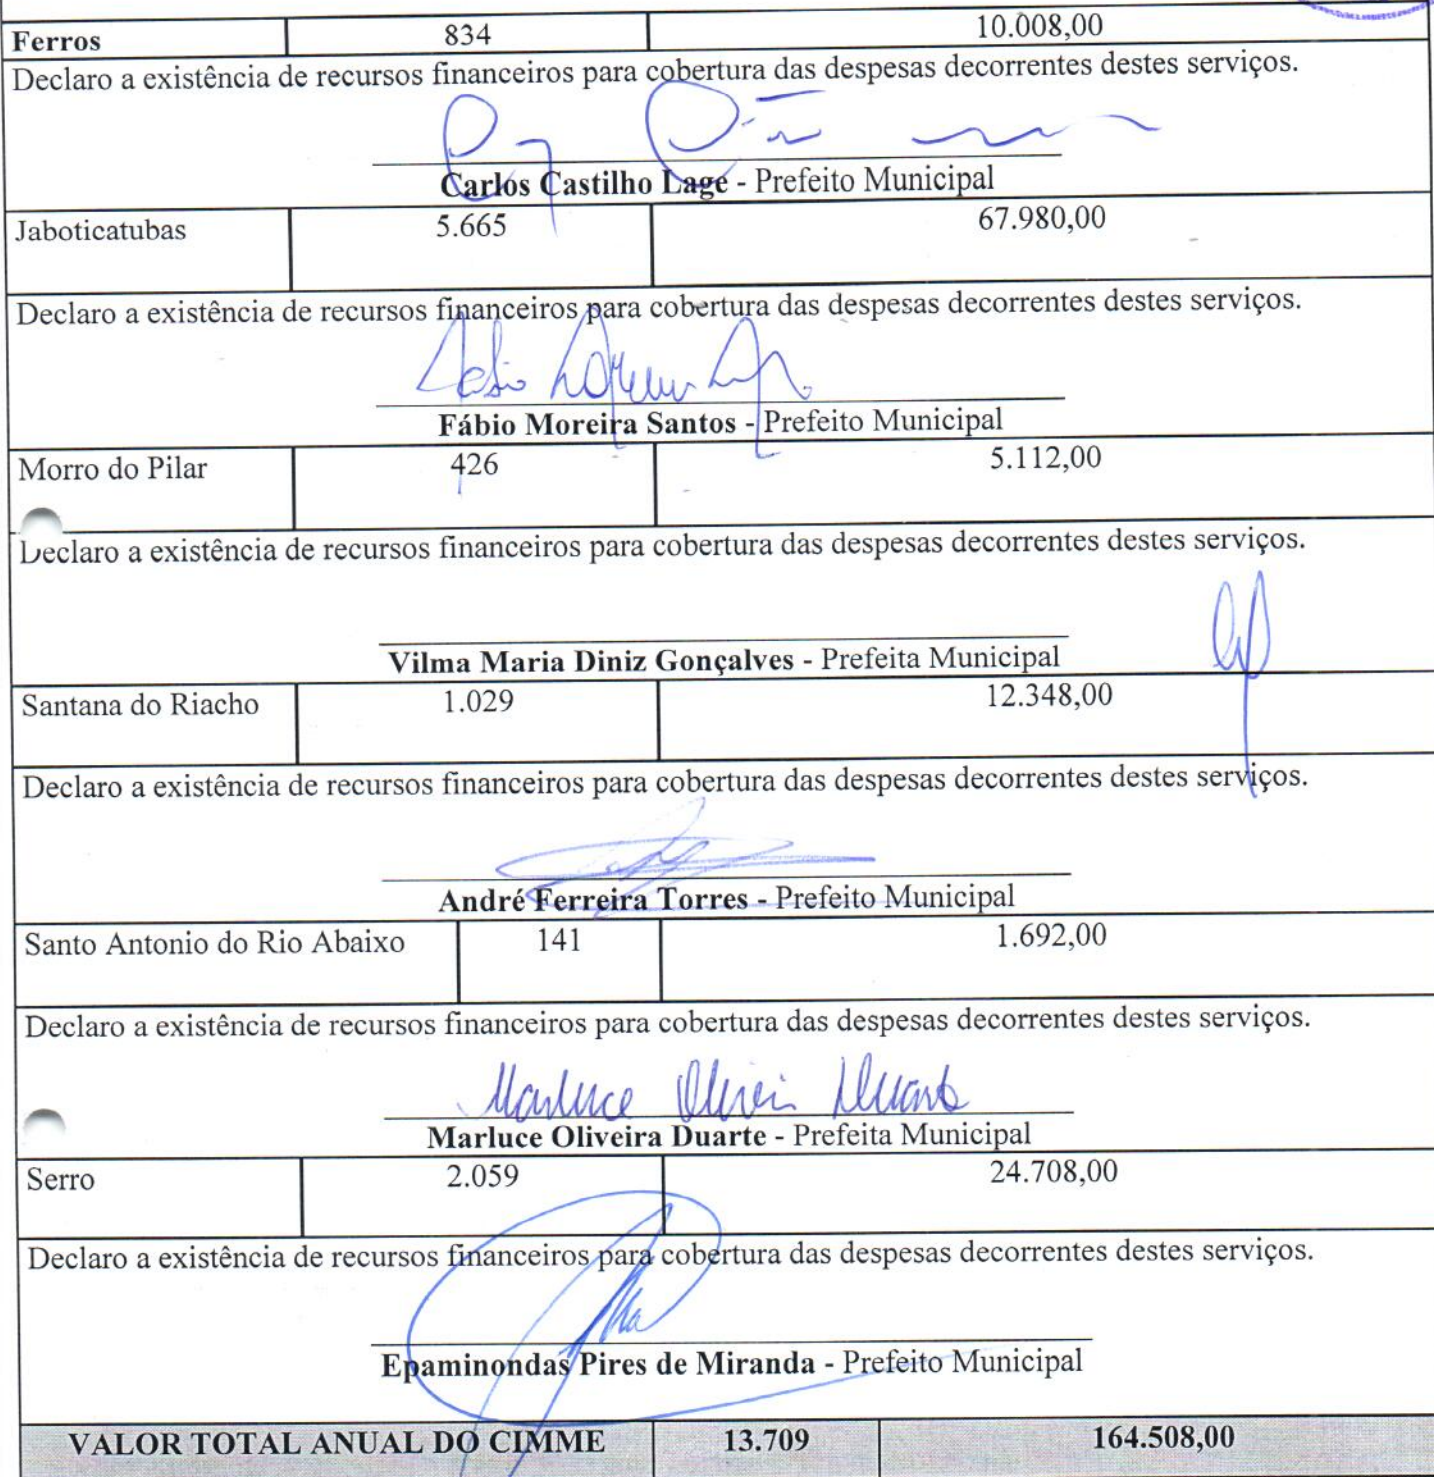 Ferros 834 10.008,00
Declaro a existência de recursos financeiros para cobertura das despesas decorrentes destes serviços.
Carlos Castilho Lage - Prefeito Municipal
Jaboticatubas 5.665 67.980,00
Declaro a existência de recursos financeiros para cobertura das despesas decorrentes destes serviços.
Fábio Moreira Santos - Prefeito Municipal
Morro do Pilar 426 5.112,00
Declaro a existência de recursos financeiros para cobertura das despesas decorrentes destes serviços.
Vilma Maria Diniz Gonçalves - Prefeita Municipal
Santana do Riacho 1.029 12.348,00
Declaro a existência de recursos financeiros para cobertura das despesas decorrentes destes serviços.
André Ferreira Torres - Prefeito Municipal
Santo Antonio do Rio Abaixo 141 1.692,00
Declaro a existência de recursos financeiros para cobertura das despesas decorrentes destes serviços.
Marluce Oliveira Duarte
Marluce Oliveira Duarte - Prefeita Municipal
Serro 2.059 24.708,00
Declaro a existência de recursos financeiros para cobertura das despesas decorrentes destes serviços.
Epaminondas Pires de Miranda - Prefeito Municipal
VALOR TOTAL ANUAL DO CIMME 13.709 164.508,00